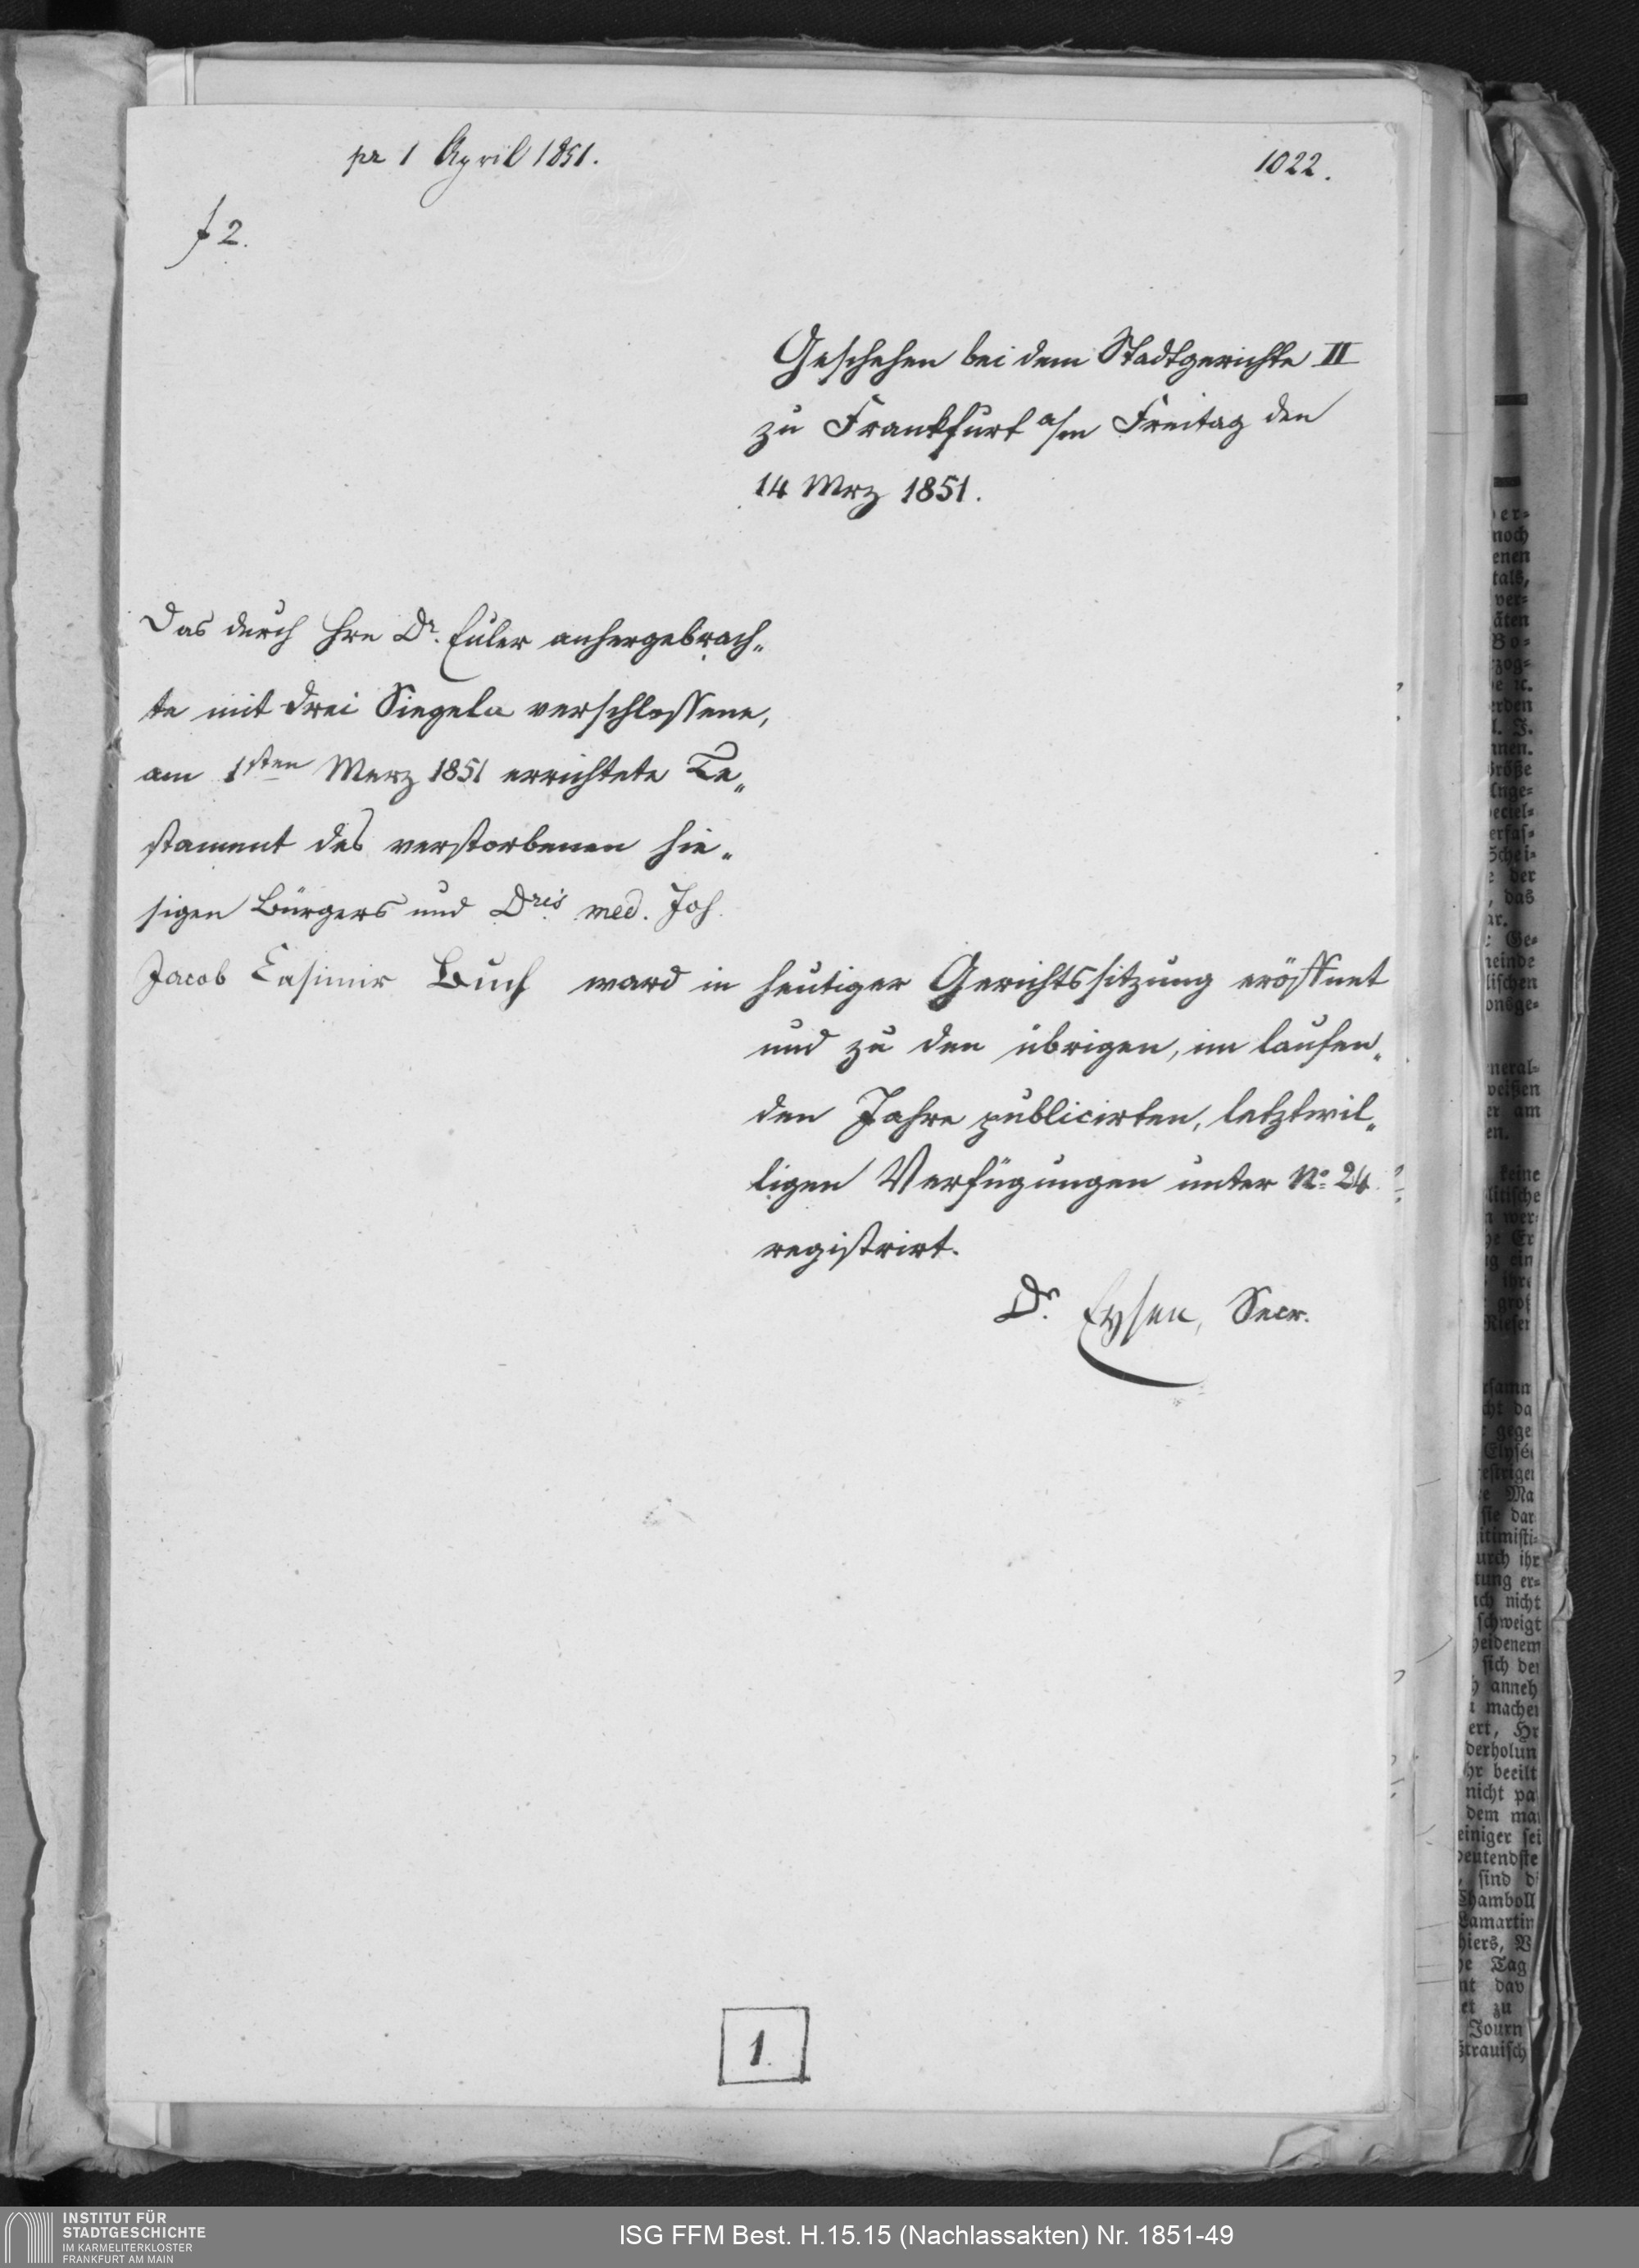 pr 1 April 1851.
1022.
f 2.
Geschehen bei dem Stadtgerichte II
zu Frankfurt a/m Freitag den
14 Mrz 1851.
Das durch Hrn Dr. Euler anhergebrach„
te mit drei Siegeln verschlossene,
am 1sten Merz 1851 errichtete Te„
stament des verstorbenen hie„
sigen Bürgers und Dris med. Joh.
Jacob Casimir Buch ward in heutiger Gerichtssitzung eröffnet
und zu den übrigen, im laufen„
den Jahre publicirten, letztwil„
ligen Verfügungen unter No. 24
registrirt.
Dr. Eysen, Secr.
1.
noch
enen
tals,
ver=
äten
Bo=
zog=
erden
nnen.
Größe
Schei=
der
das
Ge=
neinde
lischen
onsge=
neral=
weißen
am
en.
keine
litische
wer
Er
ein
ihre
Riesen
gege
Ma
sie dar
itimisti=
urch ihr
tung er=
nicht
schweigt
heidenem
sich der
anneh
machen
ert, Hr
derholun
hr beeilt
nicht pa
dem ma
einiger sei
deutendste
sind di
Chamboll
Lamartin
hiers, V
Tag
nt dav
et zu
Journ
ztrauisch
INSTITUT FÜR
STADTGESCHICHTE
IM KARMELITERKLOSTER
FRANKFURT AM MAIN
ISG FFM Best. H.15.15 (Nachlassakten) Nr. 1851-49